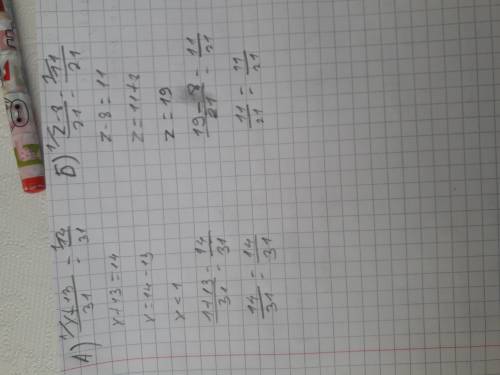 А) (x+13)/31 = 14/31
x+13=14
x=14-13
x=1
(1+13)/31 = 14/31
14/31 = 14/31
Б) (z-8)/21 = 11/21
z-8=11
z=11+8
z=19
(19-8)/21 = 11/21
11/21 = 11/21